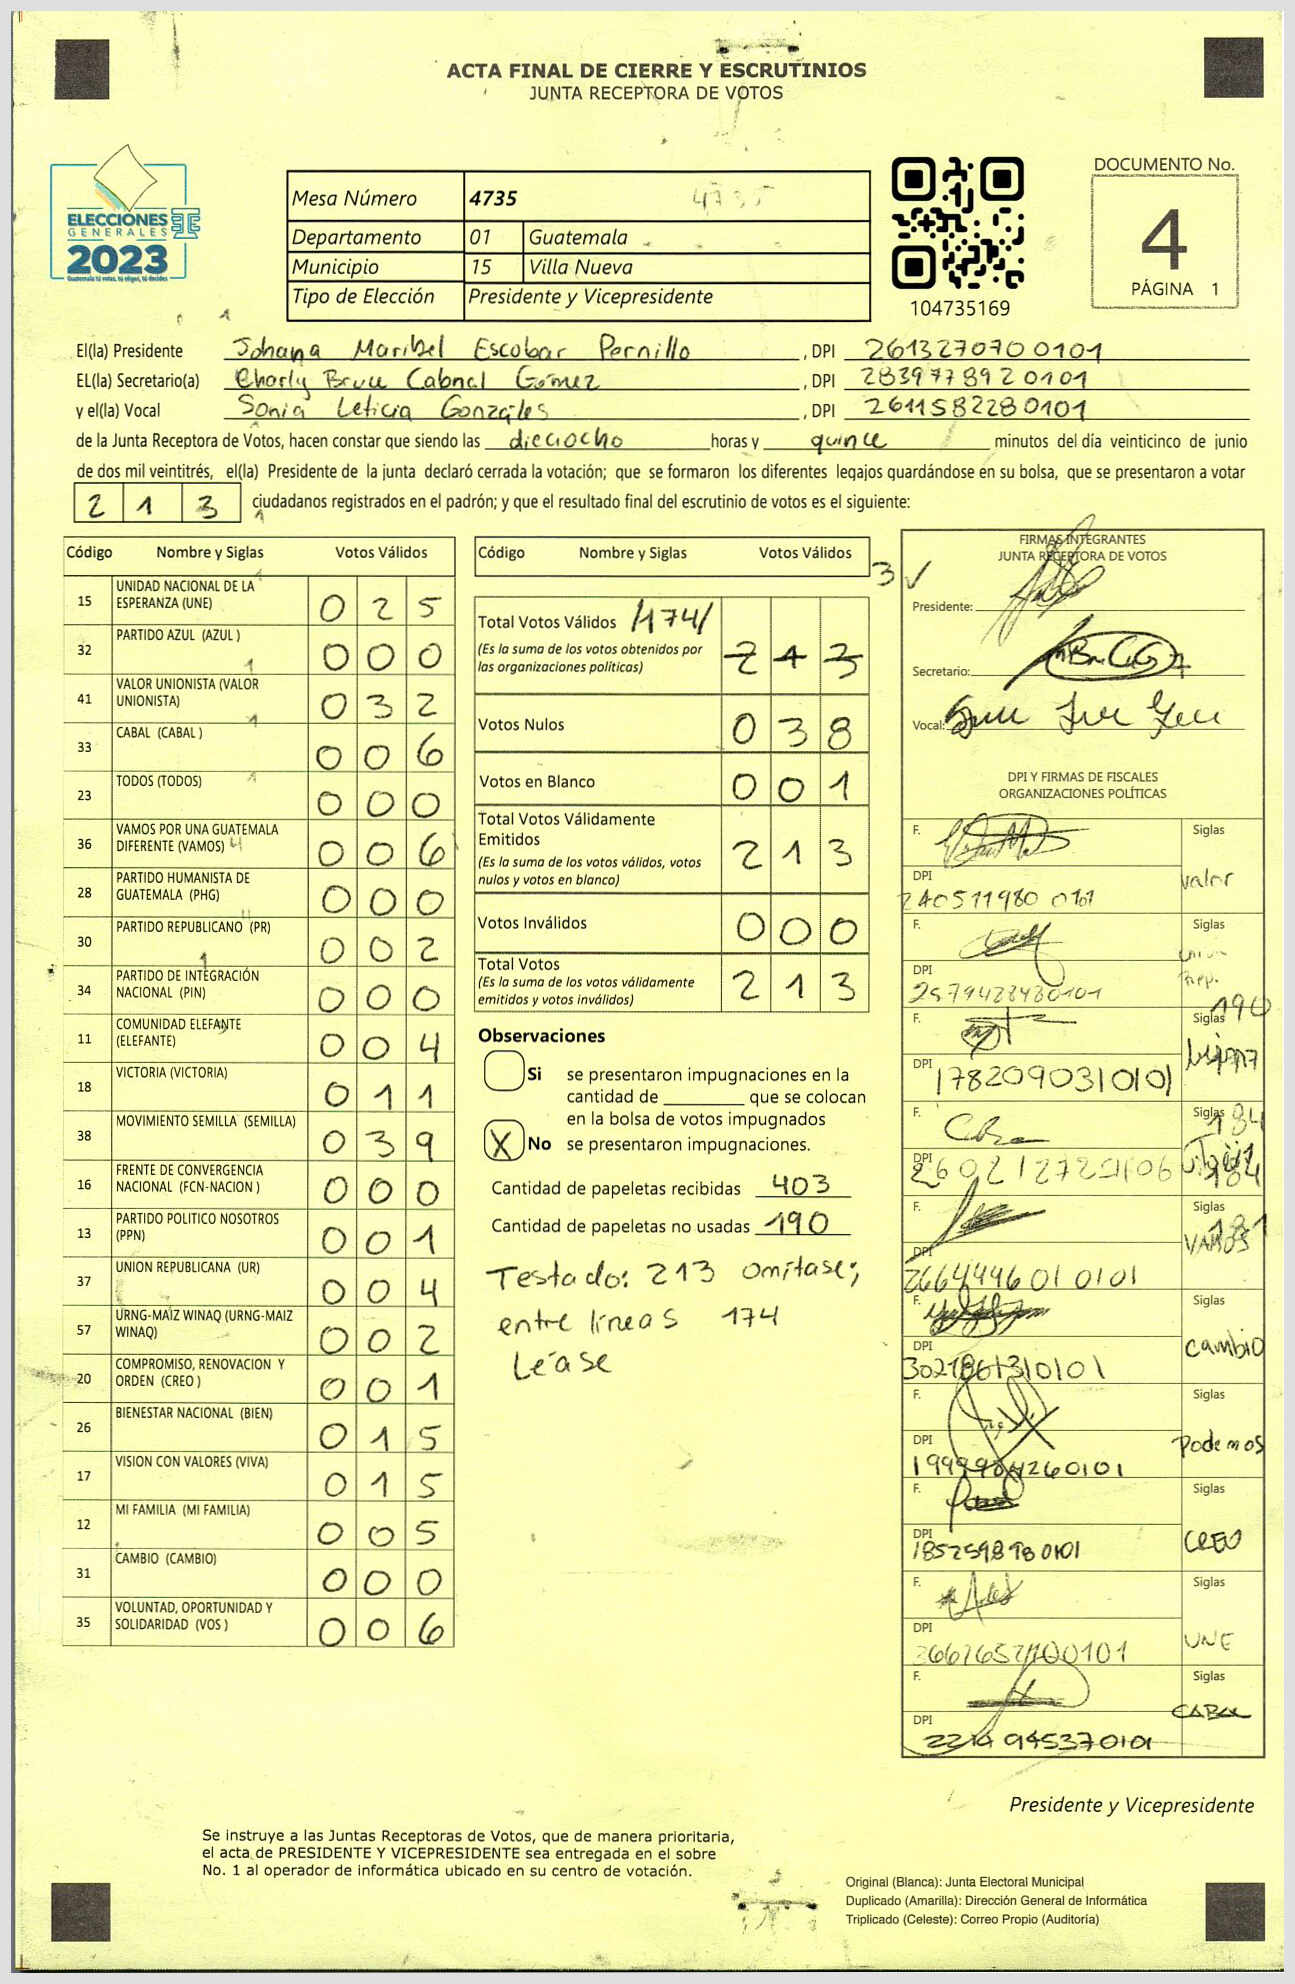 ACTA FINAL DE CIERRE Y ESCRUTINIOS
JUNTA RECEPTORA DE VOTOS
ELECCIONES
GENERALES
2023
Guatemala tú votas, tú eliges, tú decides
Mesa Número 4735 4735
Departamento 01 Guatemala
Municipio 15 Villa Nueva
Tipo de Elección Presidente y Vicepresidente
104735169
DOCUMENTO No.
4
PÁGINA 1
El(la) Presidente Johana Maribel Escobar Pernillo , DPI 2613270700101
EL(la) Secretario(a) Charly Bruce Cabnal Gómez , DPI 2839778920101
y el(la) Vocal Sonia Leticia Gonzáles , DPI 2611582280101
de la Junta Receptora de Votos, hacen constar que siendo las dieciocho horas y quince minutos del día veinticinco de junio
de dos mil veintitrés, el(la) Presidente de la junta declaró cerrada la votación; que se formaron los diferentes legajos guardándose en su bolsa, que se presentaron a votar
2 1 3 ciudadanos registrados en el padrón; y que el resultado final del escrutinio de votos es el siguiente:
Código Nombre y Siglas Votos Válidos
15 UNIDAD NACIONAL DE LA ESPERANZA (UNE) 0 2 5
32 PARTIDO AZUL (AZUL ) 0 0 0
41 VALOR UNIONISTA (VALOR UNIONISTA) 0 3 2
33 CABAL (CABAL ) 0 0 6
23 TODOS (TODOS) 0 0 0
36 VAMOS POR UNA GUATEMALA DIFERENTE (VAMOS) 0 0 6
28 PARTIDO HUMANISTA DE GUATEMALA (PHG) 0 0 0
30 PARTIDO REPUBLICANO (PR) 0 0 2
34 PARTIDO DE INTEGRACIÓN NACIONAL (PIN) 0 0 0
11 COMUNIDAD ELEFANTE (ELEFANTE) 0 0 4
18 VICTORIA (VICTORIA) 0 1 1
38 MOVIMIENTO SEMILLA (SEMILLA) 0 3 9
16 FRENTE DE CONVERGENCIA NACIONAL (FCN-NACION ) 0 0 0
13 PARTIDO POLITICO NOSOTROS (PPN) 0 0 1
37 UNION REPUBLICANA (UR) 0 0 4
57 URNG-MAIZ WINAQ (URNG-MAIZ WINAQ) 0 0 2
20 COMPROMISO, RENOVACION Y ORDEN (CREO ) 0 0 1
26 BIENESTAR NACIONAL (BIEN) 0 1 5
17 VISION CON VALORES (VIVA) 0 1 5
12 MI FAMILIA (MI FAMILIA) 0 0 5
31 CAMBIO (CAMBIO) 0 0 0
35 VOLUNTAD, OPORTUNIDAD Y SOLIDARIDAD (VOS ) 0 0 6
Código Nombre y Siglas Votos Válidos
3 ✓
Total Votos Válidos /174/ 2 1 3
(Es la suma de los votos obtenidos por
las organizaciones políticas)
Votos Nulos 0 3 8
Votos en Blanco 0 0 1
Total Votos Válidamente
Emitidos 2 1 3
(Es la suma de los votos válidos, votos
nulos y votos en blanco)
Votos Inválidos 0 0 0
Total Votos 2 1 3
(Es la suma de los votos válidamente
emitidos y votos inválidos)
Observaciones
Si se presentaron impugnaciones en la
cantidad de ________ que se colocan
en la bolsa de votos impugnados
X No se presentaron impugnaciones.
Cantidad de papeletas recibidas 403
Cantidad de papeletas no usadas 190
Testado: 213 omitase;
entre líneas 174
Léase
FIRMAS INTEGRANTES
JUNTA RECEPTORA DE VOTOS
Presidente:
Secretario:
Vocal:
DPI Y FIRMAS DE FISCALES
ORGANIZACIONES POLÍTICAS
F. Siglas
DPI Valor
240511980 0101
F. Siglas
DPI
2579428480101
F. Siglas 190
DPI
1782090310101
F. Siglas 184
DPI 184
F. Siglas 181
DPI VAMOS
2664449601 0101
F. Siglas
DPI Cambio
F. Siglas
DPI Podemos
F. Siglas
DPI CREO
1852598980101
F. Siglas
DPI UNE
F. Siglas
DPI CABAL
2214 945370101
Presidente y Vicepresidente
Se instruye a las Juntas Receptoras de Votos, que de manera prioritaria,
el acta de PRESIDENTE Y VICEPRESIDENTE sea entregada en el sobre
No. 1 al operador de informática ubicado en su centro de votación.
Original (Blanca): Junta Electoral Municipal
Duplicado (Amarilla): Dirección General de Informática
Triplicado (Celeste): Correo Propio (Auditoría)